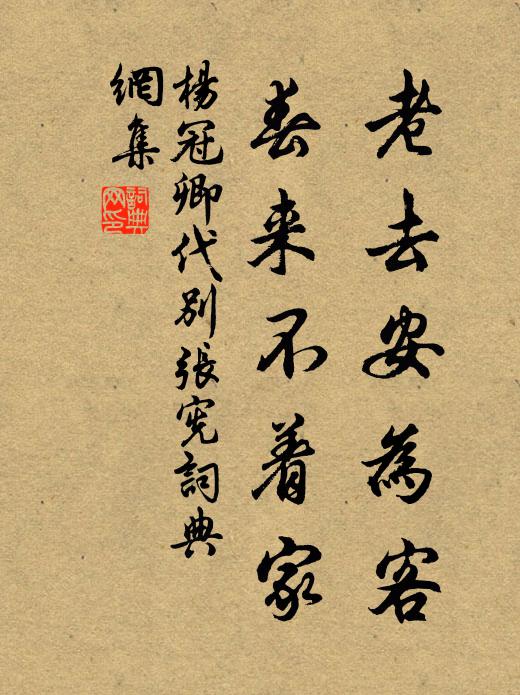 老去安為客
春来不着家
楊冠卿代别張宪詞典
網集
詞典網印